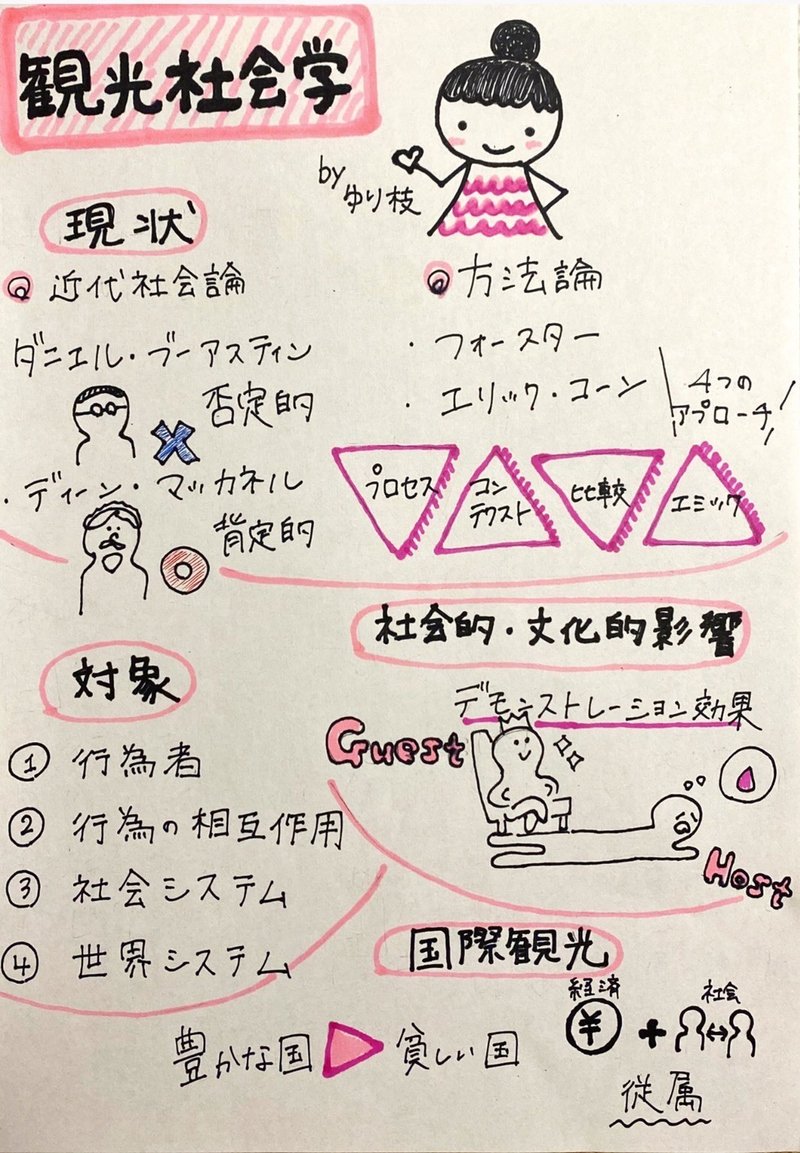 観光社会学
by
ゆり枝
現状
近代社会論
ダニエル・ブーアスティン
否定的
・ディーン・マッカネル
肯定的
方法論
・フォースター
・エリック・コーン
4つの
アプローチ!
プロセス
コン
テクスト
比較
エミック
対象
① 行為者
② 行為の相互作用
③ 社会システム
④ 世界システム
社会的・文化的影響
デモンストレーション効果
Guest
Host
国際観光
豊かな国
貧しい国
経済
¥
+
社会
従属